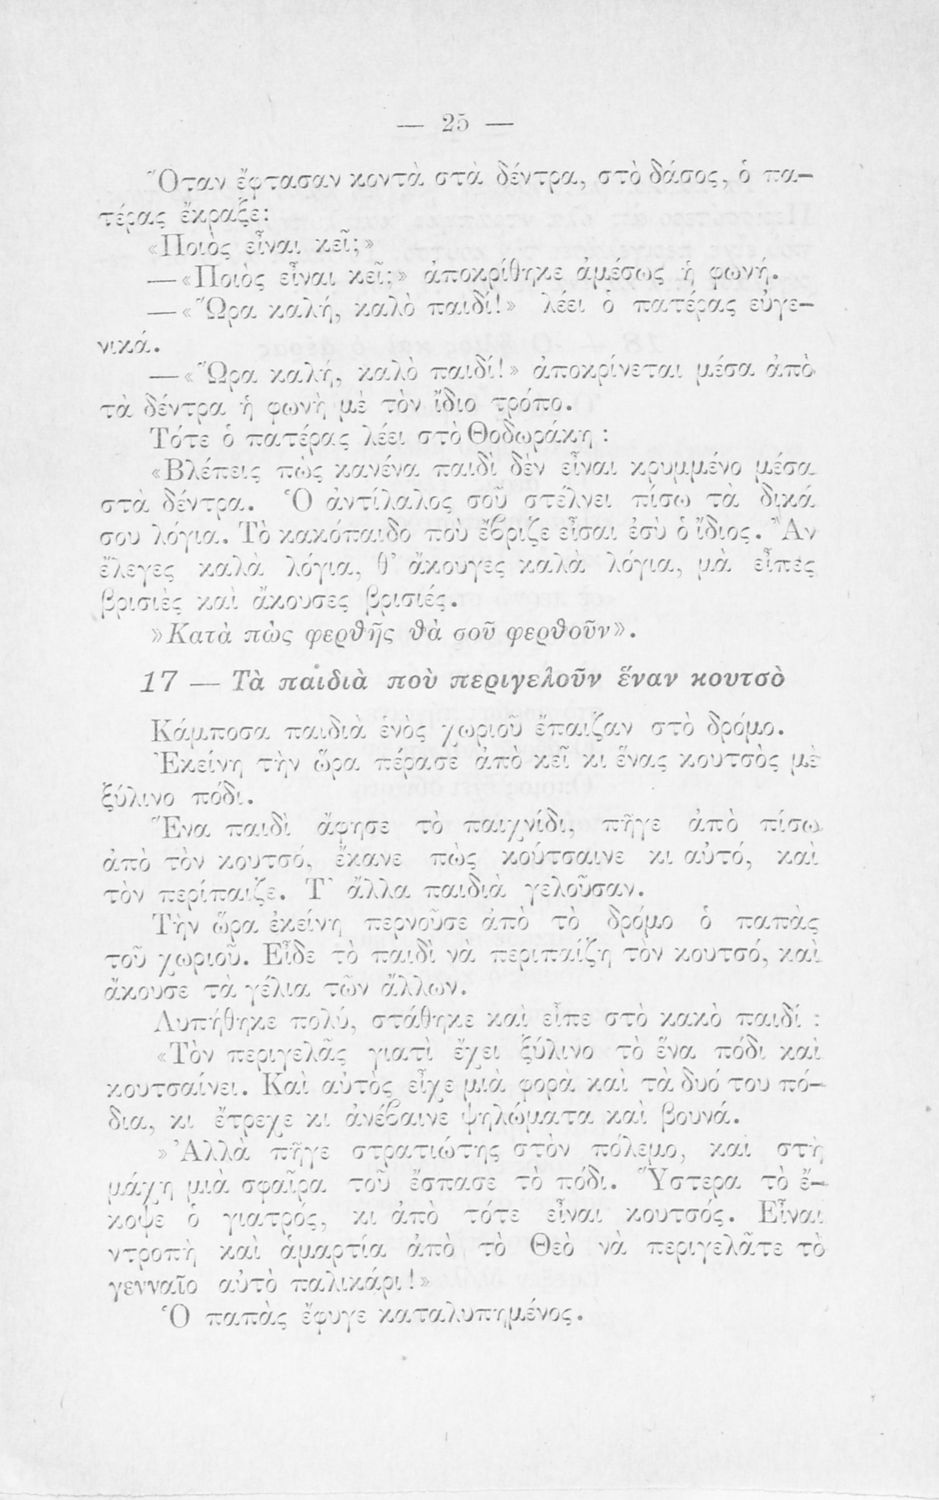 — 25 —
Ὅταν ἔφτασαν κοντὰ στὰ δέντρα, στὸ δάσος, ὁ πα-
τέρας ἔκραξε:
«Ποιὸς εἶναι κεῖ;»
—«Ποιὸς εἶναι κεῖ;» ἀποκρίθηκε ἀμέσως ἡ φωνή.
—«Ὥρα καλή, καλὸ παιδί!» λέει ὁ πατέρας εὐγε-
νικά.
—«Ὥρα καλή, καλὸ παιδί!» ἀποκρίνεται μέσα ἀπὸ
τὰ δέντρα ἡ φωνὴ μὲ τὸν ἴδιο τρόπο.
Τότε ὁ πατέρας λέει στὸ Θοδωράκη :
«Βλέπεις πὼς κανένα παιδὶ δὲν εἶναι κρυμμένο μέσα
στὰ δέντρα. Ὁ ἀντίλαλος σοῦ στέλνει πίσω τὰ δικά
σου λόγια. Τὸ κακόπαιδο ποὺ ἔβριζε εἶσαι ἐσὺ ὁ ἴδιος. Ἂν
ἔλεγες καλὰ λόγια, θ' ἄκουγες καλὰ λόγια, μὰ εἶπες
βρισιὲς καὶ ἄκουσες βρισιές.
»Κατὰ πὼς φερθῆς θὰ σοῦ φερθοῦν».
17 — Τὰ παιδιὰ ποὺ περιγελοῦν ἕναν κουτσὸ
Κάμποσα παιδιὰ ἑνὸς χωριοῦ ἔπαιζαν στὸ δρόμο.
Ἐκείνη τὴν ὥρα πέρασε ἀπὸ κεῖ κι ἕνας κουτσὸς μὲ
ξύλινο πόδι.
Ἕνα παιδὶ ἄφησε τὸ παιχνίδι, πῆγε ἀπὸ πίσω
ἀπὸ τὸν κουτσό, ἔκανε πὼς κούτσαινε κι αὐτό, καὶ
τὸν περίπαιζε. Τ' ἄλλα παιδιὰ γελοῦσαν.
Τὴν ὥρα ἐκείνη περνοῦσε ἀπὸ τὸ δρόμο ὁ παπὰς
τοῦ χωριοῦ. Εἶδε τὸ παιδὶ νὰ περιπαίζη τὸν κουτσό, καὶ
ἄκουσε τὰ γέλια τῶν ἄλλων.
Λυπήθηκε πολύ, στάθηκε καὶ εἶπε στὸ κακὸ παιδί :
«Τὸν περιγελᾶς γιατὶ ἔχει ξύλινο τὸ ἕνα πόδι καὶ
κουτσαίνει. Καὶ αὐτὸς εἶχε μιὰ φορὰ καὶ τὰ δυό του πό-
δια, κι ἔτρεχε κι ἀνέβαινε ψηλώματα καὶ βουνά.
»Ἀλλὰ πῆγε στρατιώτης στὸν πόλεμο, καὶ στὴ
μάχη μιὰ σφαῖρα τοῦ ἔσπασε τὸ πόδι. Ὕστερα τὸ ἔ-
κοψε ὁ γιατρός, κι ἀπὸ τότε εἶναι κουτσός. Εἶναι
ντροπὴ καὶ ἁμαρτία ἀπὸ τὸ Θεὸ νὰ περιγελᾶτε τὸ
γενναῖο αὐτὸ παλικάρι!»
Ὁ παπὰς ἔφυγε καταλυπημένος.